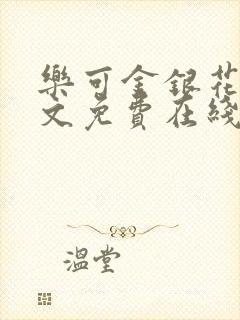 樂可金銀花
文免費在綫
溫堂